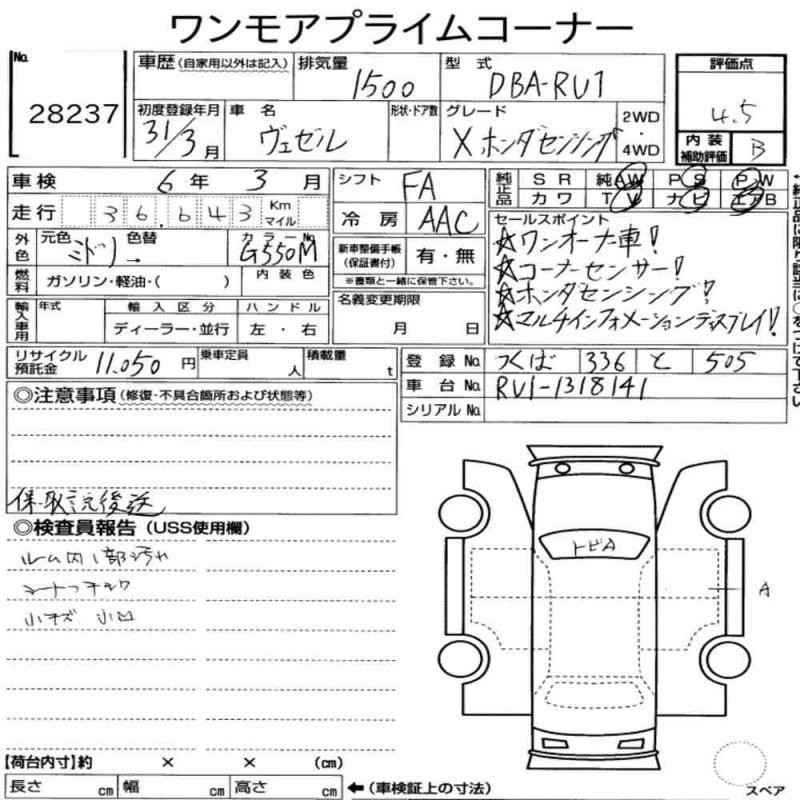 ワンモアプライムコーナー
No. 28237
車歴 (自家用以外は記入)
排気量 1500
型式 DBA-RU1
評価点 4.5
初度登録年月 31/3月
車名 ヴェゼル
形状・ドア数
グレード Xホンダセンシング
2WD
4WD
内装補助評価 B
車検 6年 3月
シフト FA
純正品 SR 純AW PS PW
カワ TV ナビ エアB
走行 36,643 Km マイル
冷房 AAC
セールスポイント
☆ワンオーナ車!
☆コーナーセンサー!
☆ホンダセンシング!
☆マルチインフォメーションディスプレイ!
外色 元色 ミドリ 色替 → カラーNo. G550M
燃料 ガソリン・軽油・( ) 内装色
新車整備手帳(保証書付) 有・無
※書類と一緒に保管下さい。
輸入車用 年式 輸入区分 ハンドル
ディーラー・並行 左・右
名義変更期限
月 日
リサイクル預託金 11,050円
乗車定員 人
積載量 t
登録No. つくば 336 と 505
車台No. RU1-1318141
シリアルNo.
◎注意事項 (修復・不具合箇所および状態等)
保・取記后後送
◎検査員報告 (USS使用欄)
ルーム内1部汚れ
シートっチック
小キズ 小凹
トビA
A
【荷台内寸】約 × × (cm)
長さ cm 幅 cm 高さ cm
← (車検証上の寸法)
スペア